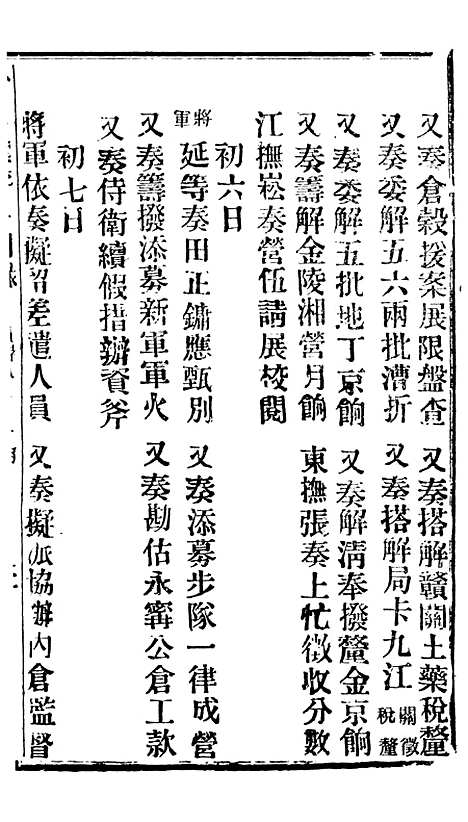 又奏倉穀援案展限盤查　又奏搭解贛關土藥稅釐
又奏委解五六兩批漕折　又奏搭解局卡九江關徵稅釐
又奏委解五批地丁京餉　又奏解淸奉撥釐金京餉
又奏籌解金陵湘營月餉　東撫張奏上忙徵收分數
江撫崧奏營伍請展校閱
初六日
將軍延等奏田正鏽應甄別　又奏添募步隊一律成營
又奏籌撥添募新軍軍火　又奏勘估永寗公倉工款
又奏侍衛續假措辦資斧
初七日
將軍依奏擬留差遣人員　又奏擬派協辦內倉監督